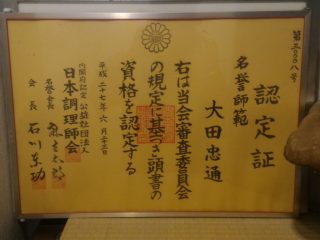 第三〇〇八号
認定証
名誉師範
大田忠通
右は当会審査委員会
の規定に基づき頭書の
資格を認定する
平成二十七年六月二十三日
内閣府認定 公益社団法人
日本調理師会
名誉会長
会長 石川